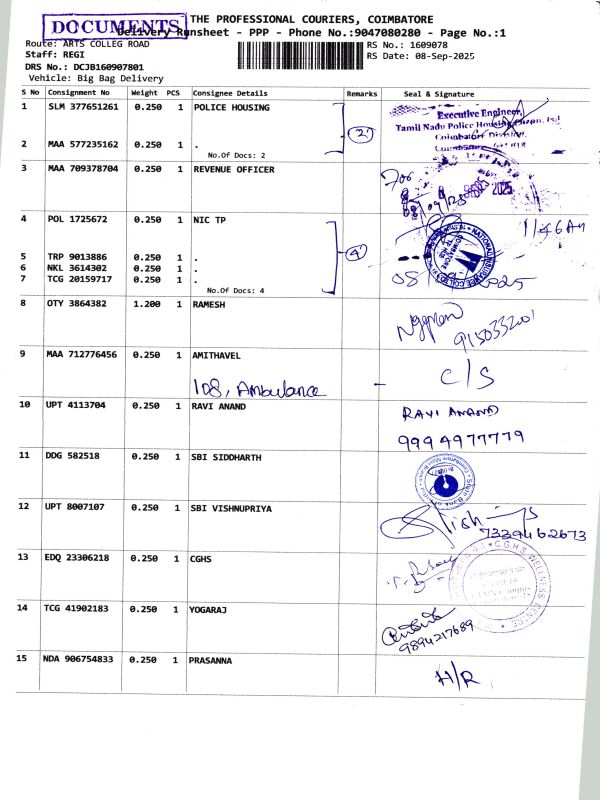 DOCUMENTS
THE PROFESSIONAL COURIERS, COIMBATORE
Delivery Runsheet - PPP - Phone No.:9047080280 - Page No.:1
Route: ARTS COLLEG ROAD
RS No.: 1609078
Staff: REGI
RS Date: 08-Sep-2025
DRS No.: DCJB160907801
Vehicle: Big Bag Delivery
S No Consignment No Weight PCS Consignee Details Remarks Seal & Signature
1 SLM 377651261 0.250 1 POLICE HOUSING
Executive Engineer,
Tamil Nadu Police Housing
Coimbatore Division,
2
2 MAA 577235162 0.250 1 .
No.Of Docs: 2
3 MAA 709378704 0.250 1 REVENUE OFFICER
For
2025
4 POL 1725672 0.250 1 NIC TP
11/46 AM
4
5 TRP 9013886 0.250 1 .
6 NKL 3614302 0.250 1 .
7 TCG 20159717 0.250 1 .
No.Of Docs: 4
8 OTY 3864382 1.200 1 RAMESH
9150332001
9 MAA 712776456 0.250 1 AMITHAVEL
108, Ambulance - C/S
10 UPT 4113704 0.250 1 RAVI ANAND
RAVI ANAND
9994977779
11 DDG 582518 0.250 1 SBI SIDDHARTH
12 UPT 8007107 0.250 1 SBI VISHNUPRIYA
7339462673
13 EDQ 23306218 0.250 1 CGHS
C.G.H.S. WELLNESS CENTRE
14 TCG 41902183 0.250 1 YOGARAJ
9894217689
15 NDA 906754833 0.250 1 PRASANNA
H/R